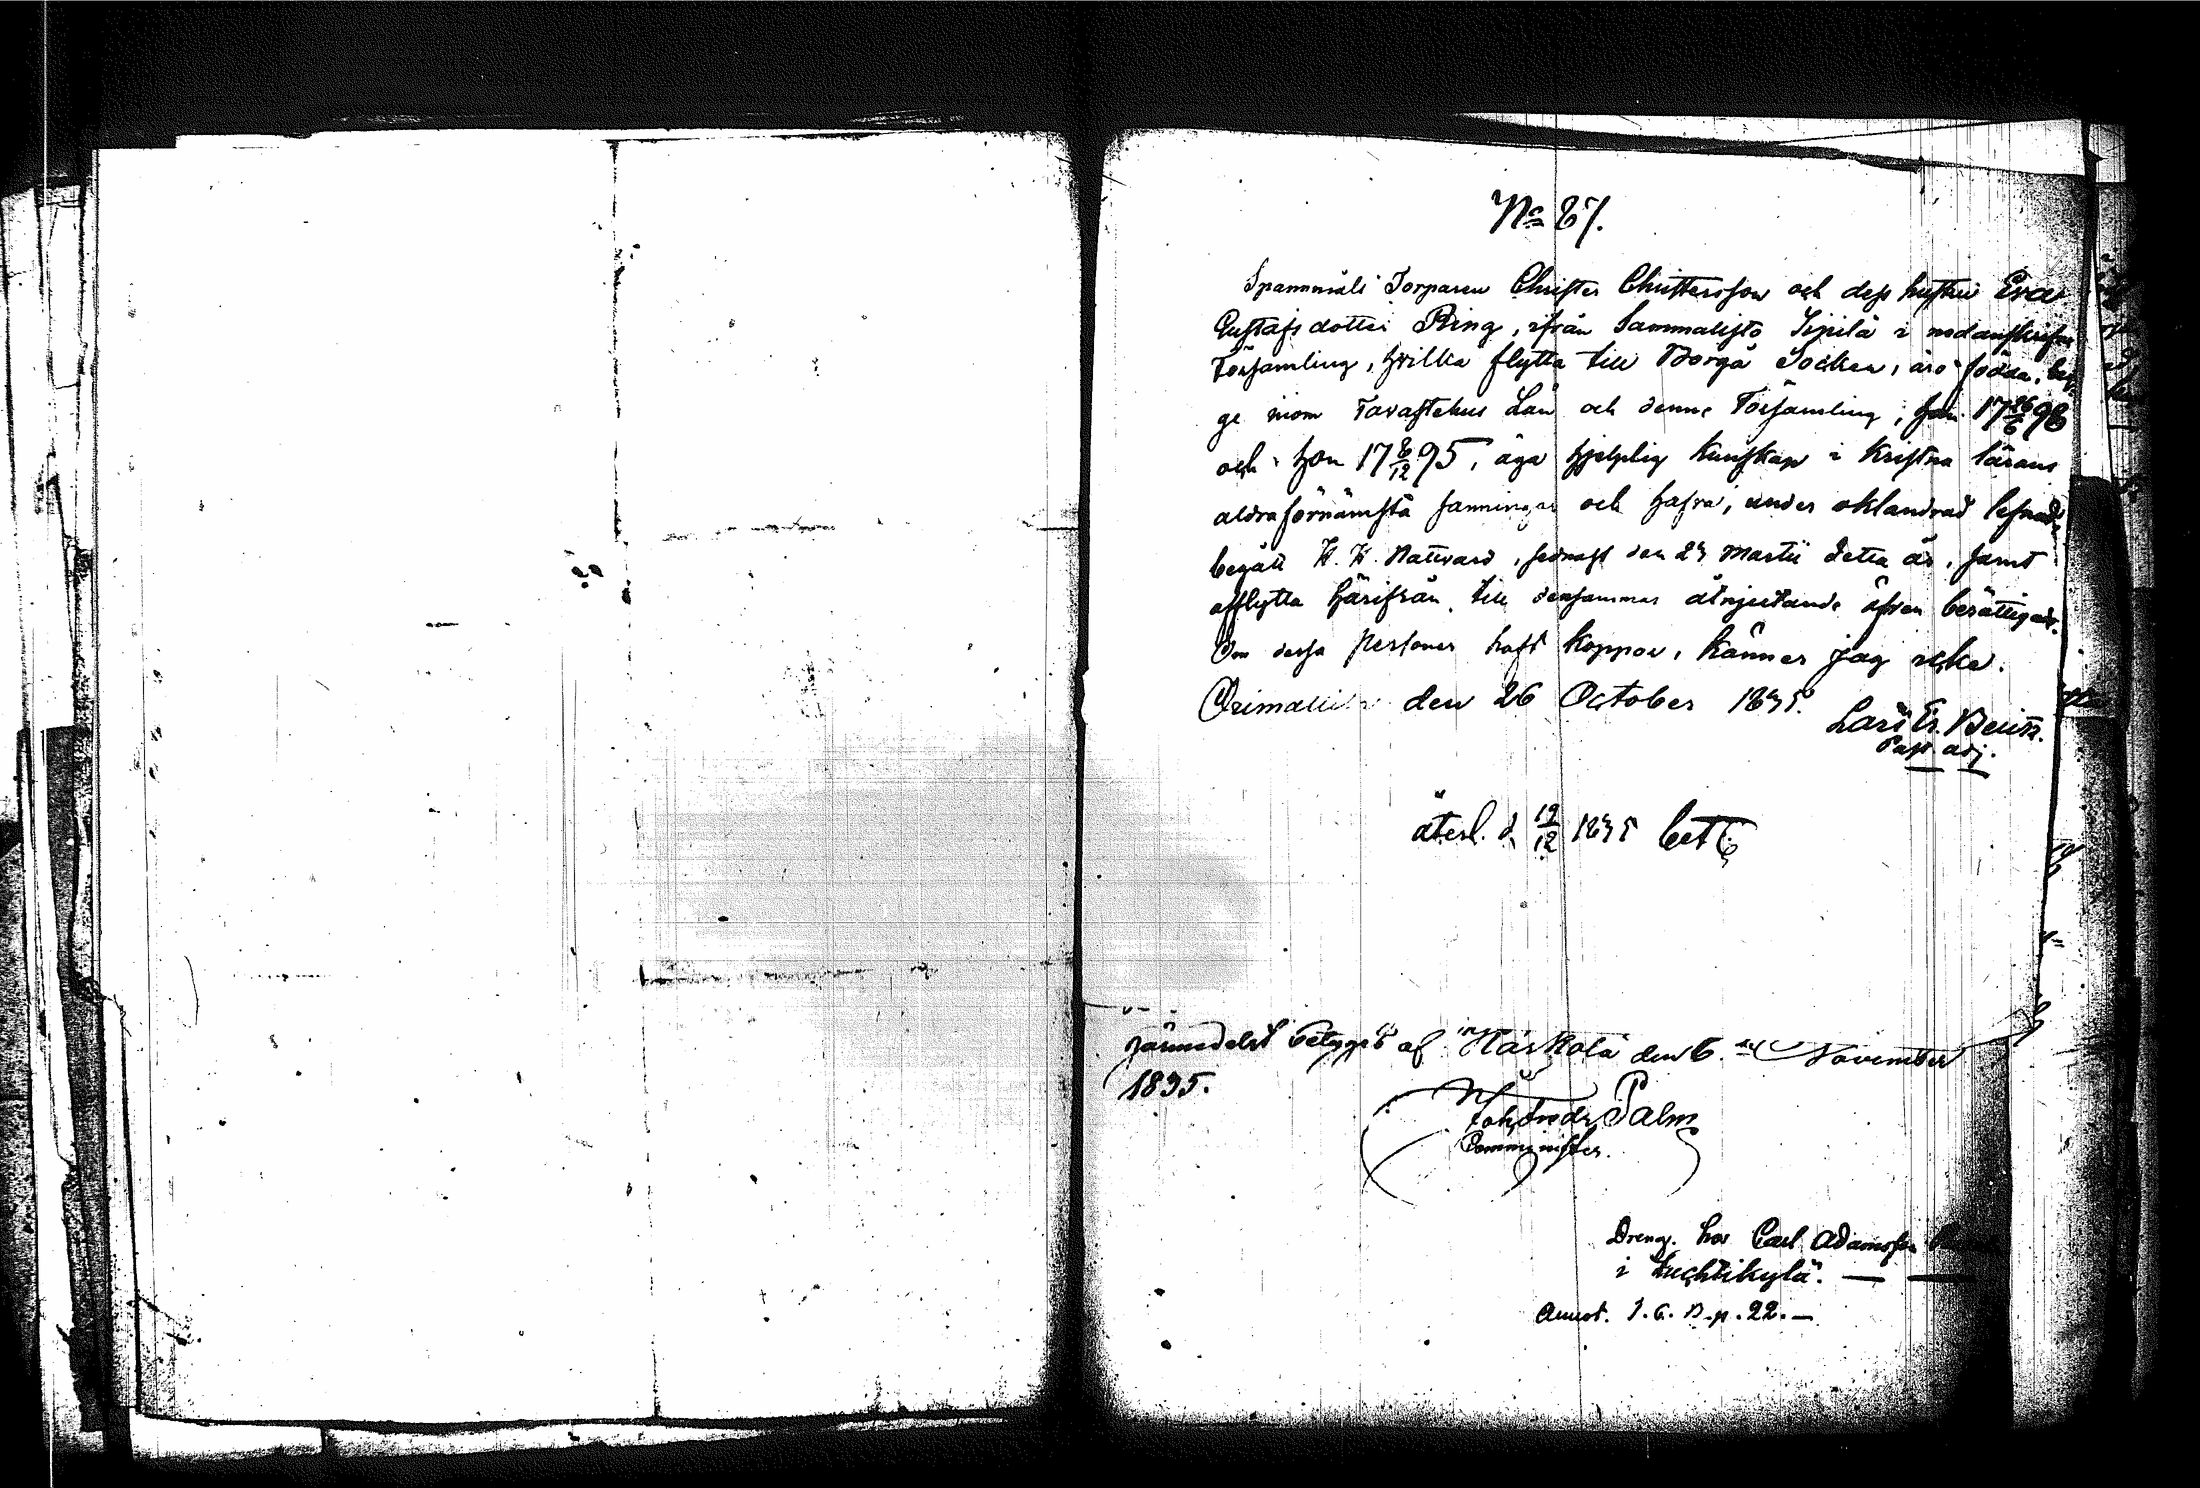 No 87.
Spannmåls Torparen Christer Christersson och dess hustru Eva
Gustafsdotter Ring, ifrån Sammalisto Sipilä i nedanskrefne
Församling, hvilka flytta till Borgå Socken, äro födda, beg
ge inom Tavastehus Län och denne Församling, han 17 26/6 98
och hon 17 8/12 95, äga hjelplig kunskap i Kristna lärans
aldraförnämsta sanningar och hafva, under oklandrad lefnad,
begått H. H. Nattvard, sednast den 29 Martii detta år, samt
afflytta härifrån till densammas åtnjutande äfven berättigade.
Om dessa personer haft koppor, känner jag icke.
Orimattila den 26 October 1835.
Lars Er.
Past. adj.
återl. d 19/12 1835
härmedelst betygas af Härkölä den 6 November
1835.
Joh. Fredr. Palm
Comminister.
Dreng. hos Carl Adamsson
i Luchtikylä. —
Annot. I. C. B. p. 22. —